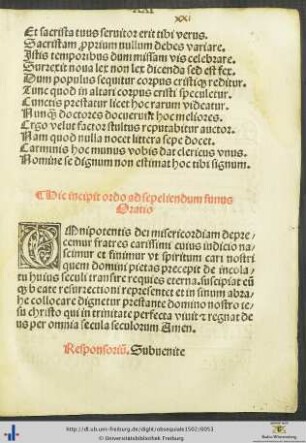 xxi
Et sacrista tuus seruitor erit tibi verus.
Sacristam ꝓprium nullum debes variare.
Istis temporibus dum missam vis celebrare.
Surrexit noua lex non lex dicenda sed est fex.
Dum populus sequitur corpus cristiqȝ reditur.
Tunc quod in altari corpus cristi speculetur.
Cunctis prestatur licet hoc rarum videatur.
Nunqȝ doctores docuerūt hoc meliores.
Ergo velut factor stultus reputabitur auctor.
Nam quod nulla nocet littera sepe docet.
Carminis hoc munus vobis dat clericus vnus.
Nomine se dignum non estimat hoc tibi signum.
Hic incipit ordo ad sepeliendum funus
Oratio
Omnipotentis dei misericordiam depre⸗
cemur fratres carissimi cuius iudicio na⸗
scimur et finimur vt spiritum cari nostri
quem domini pietas precepit de incola⸗
tu huius seculi transire requies eterna. suscipiat eū
qȝ beate resurrectioni representet et in sinum abra⸗
he collocare dignetur prestante domino nostro ie⸗
su christo qui in trinitate perfecta viuit ⁊ regnat de
us per omnia secula seculorum Amen.
Responsoriū. Subuenite
http://dl.ub.uni-freiburg.de/diglit/obsequiale1502/0051
© Universitätsbibliothek Freiburg
Baden-Württemberg